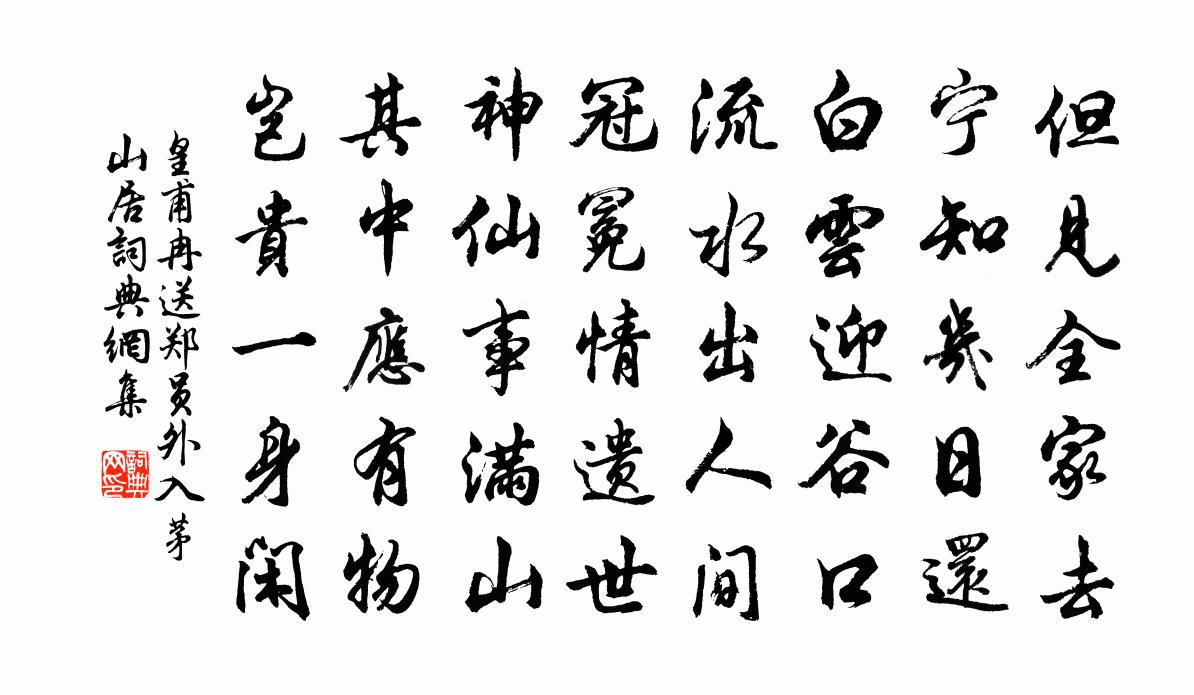 但見全家去
宁知幾日還
白雲迎谷口
流水出人間
冠冕情遗世
神仙事滿山
其中應有物
岂貴一身閑
皇甫冉送郑员外入茅
山居詞典網集
詞典
网印